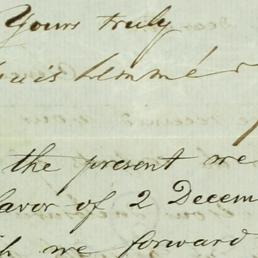 Yours truly
Louis Lemmé
the present we
favor of 2 Decem
we forward